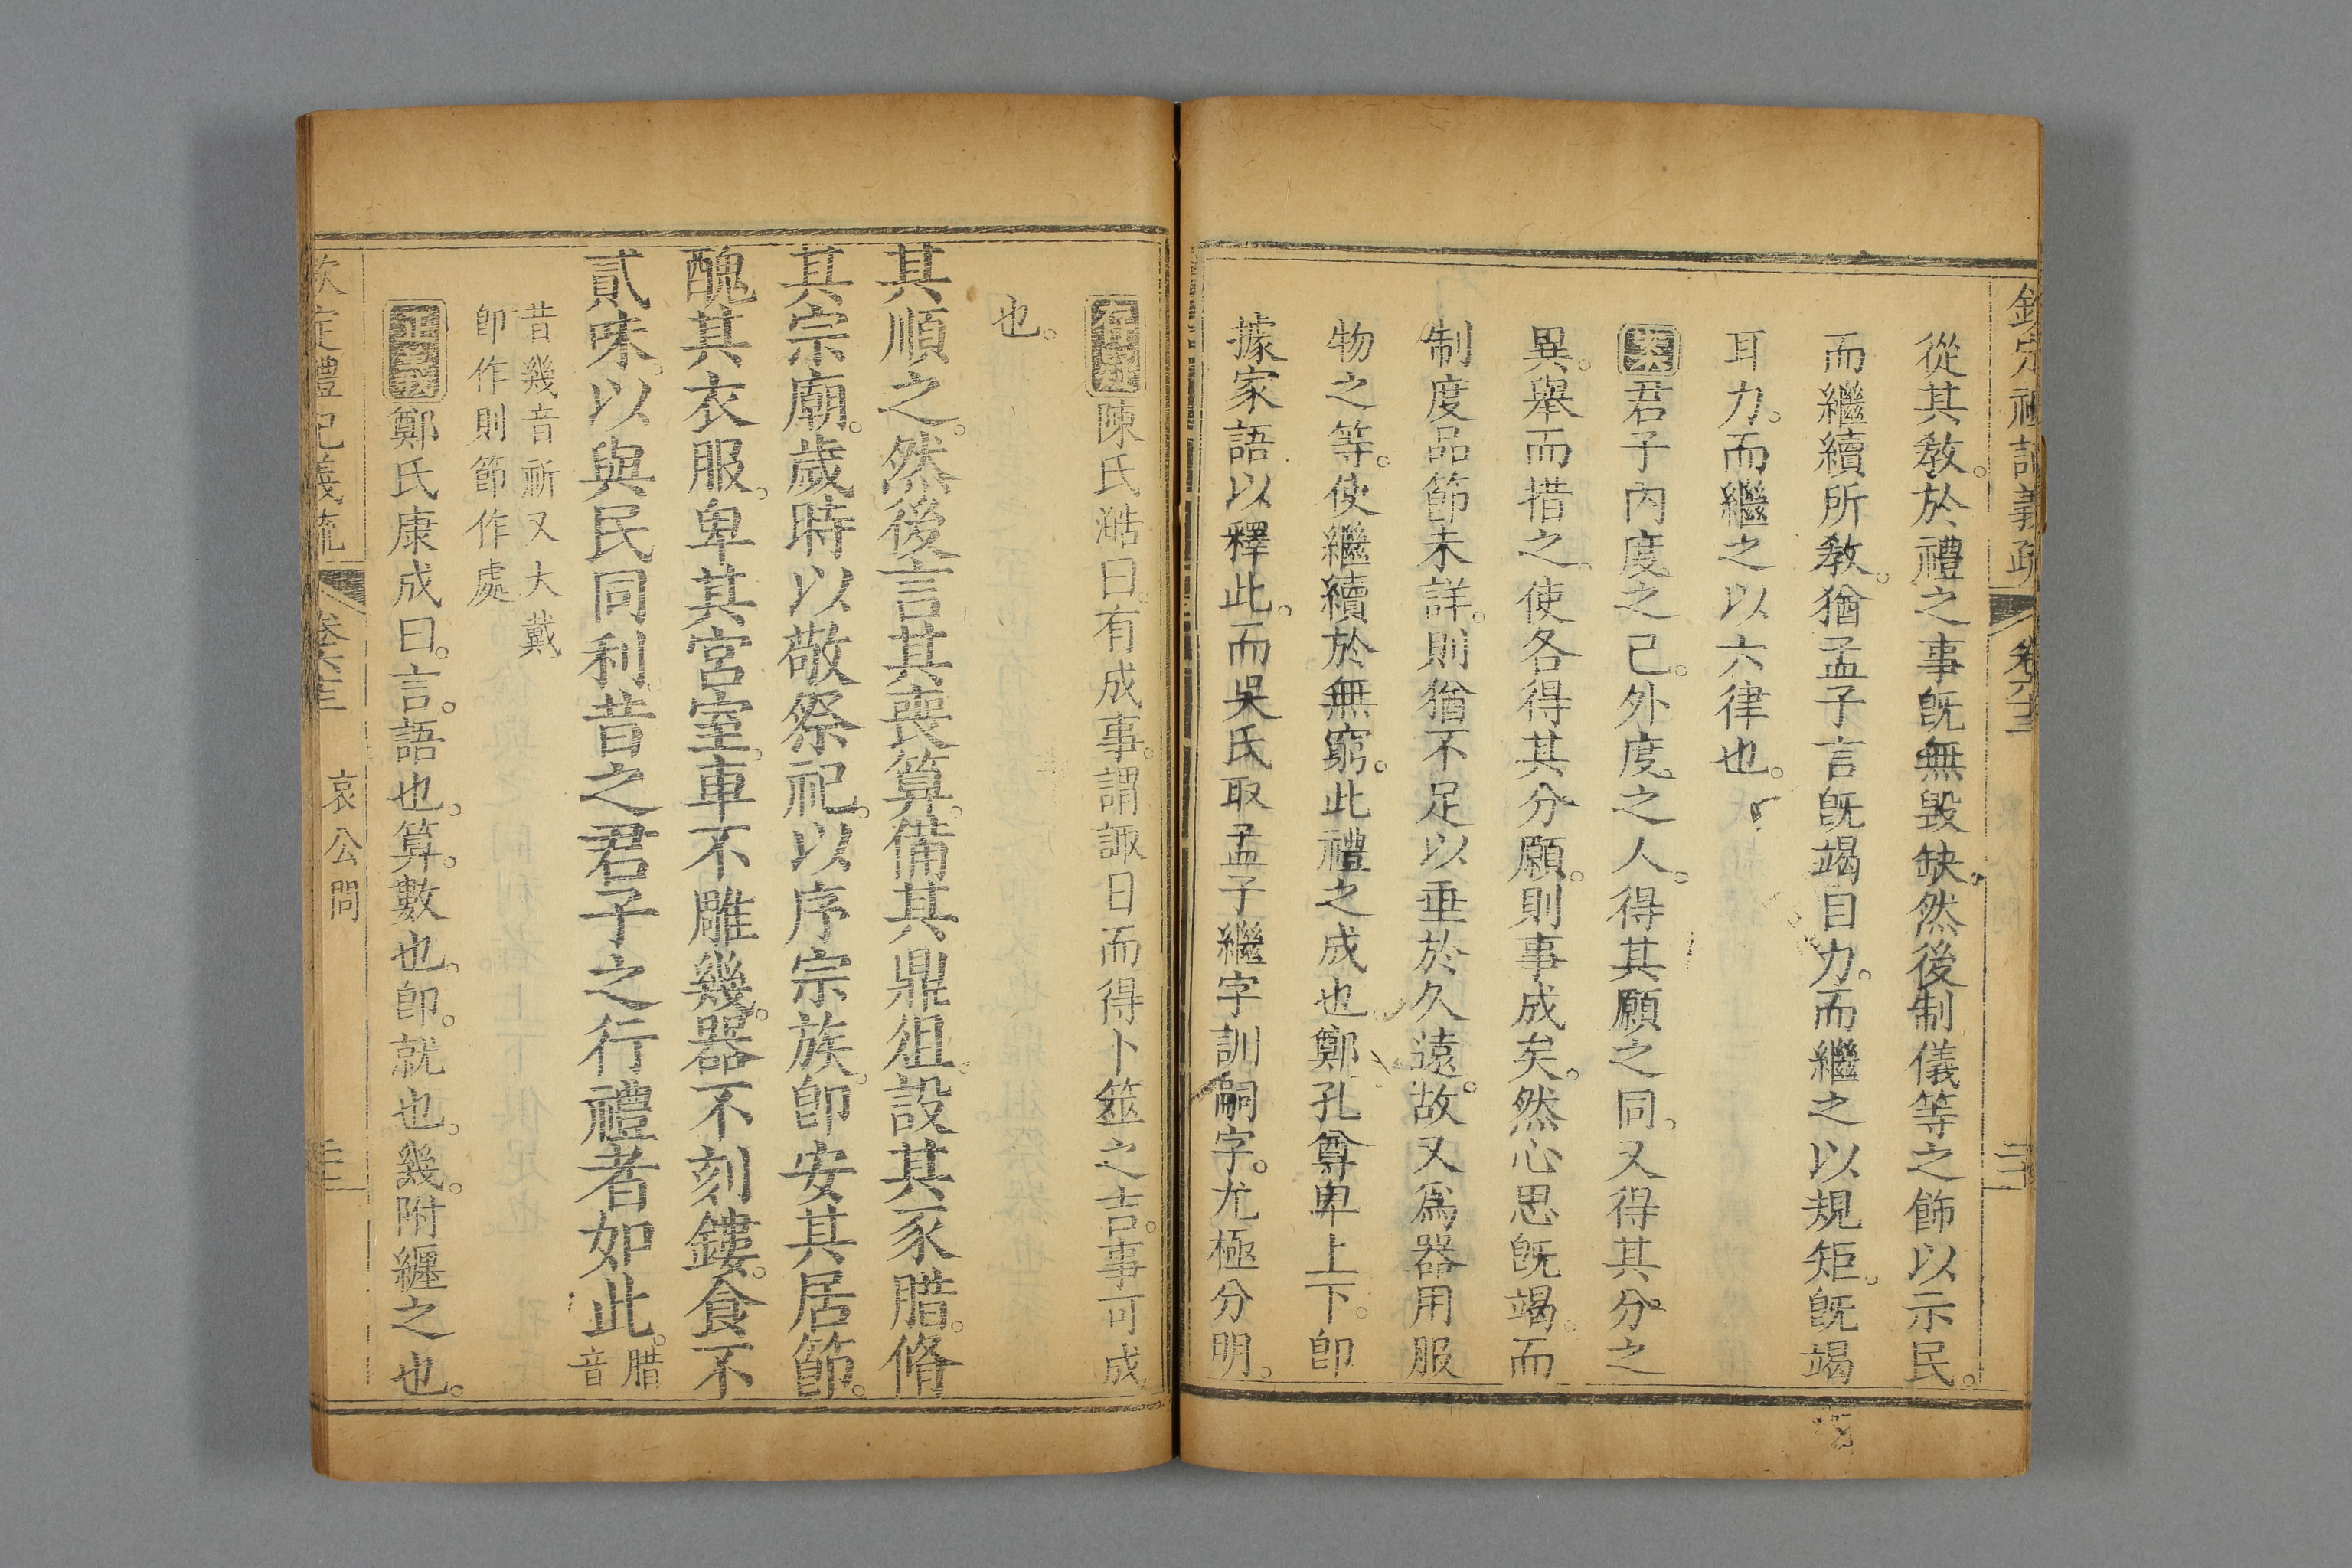 欽定禮記義疏 卷六十三
從其敎。於禮之事旣無毀缺。然後制儀等之飾以示民。
而繼續所敎。猶孟子言旣竭目力。而繼之以規矩。旣竭
耳力。而繼之以六律也。
案君子內度之己。外度之人。得其願之同。又得其分之
異。舉而措之。使各得其分願。則事成矣。然心思旣竭。而
制度品節未詳。則猶不足以垂於久遠。故又爲器用服
物之等。使繼續於無窮。此禮之成也鄭孔尊卑上下。卽
據家語以釋此。而吳氏取孟子繼字訓嗣字。尤極分明。
陳氏澔曰。有成事。謂諏日而得卜筮之吉。事可成
也。
其順之。然後言其喪算。備其鼎俎。設其豕腊。脩
其宗廟。歲時以敬祭祀。以序宗族。卽安其居節。
醜其衣服。卑其宮室。車不雕幾。器不刻鏤。食不
貳味。以與民同利昔之君子之行禮者如此。腊音
昔幾音祈又大戴
卽作則節作處
正義鄭氏康成曰。言。語也。算。數也。卽。就也。幾。附纏之也。
欽定禮記義疏 卷六十三 哀公問